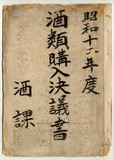 昭和十六年度
酒類購入決議書
酒課